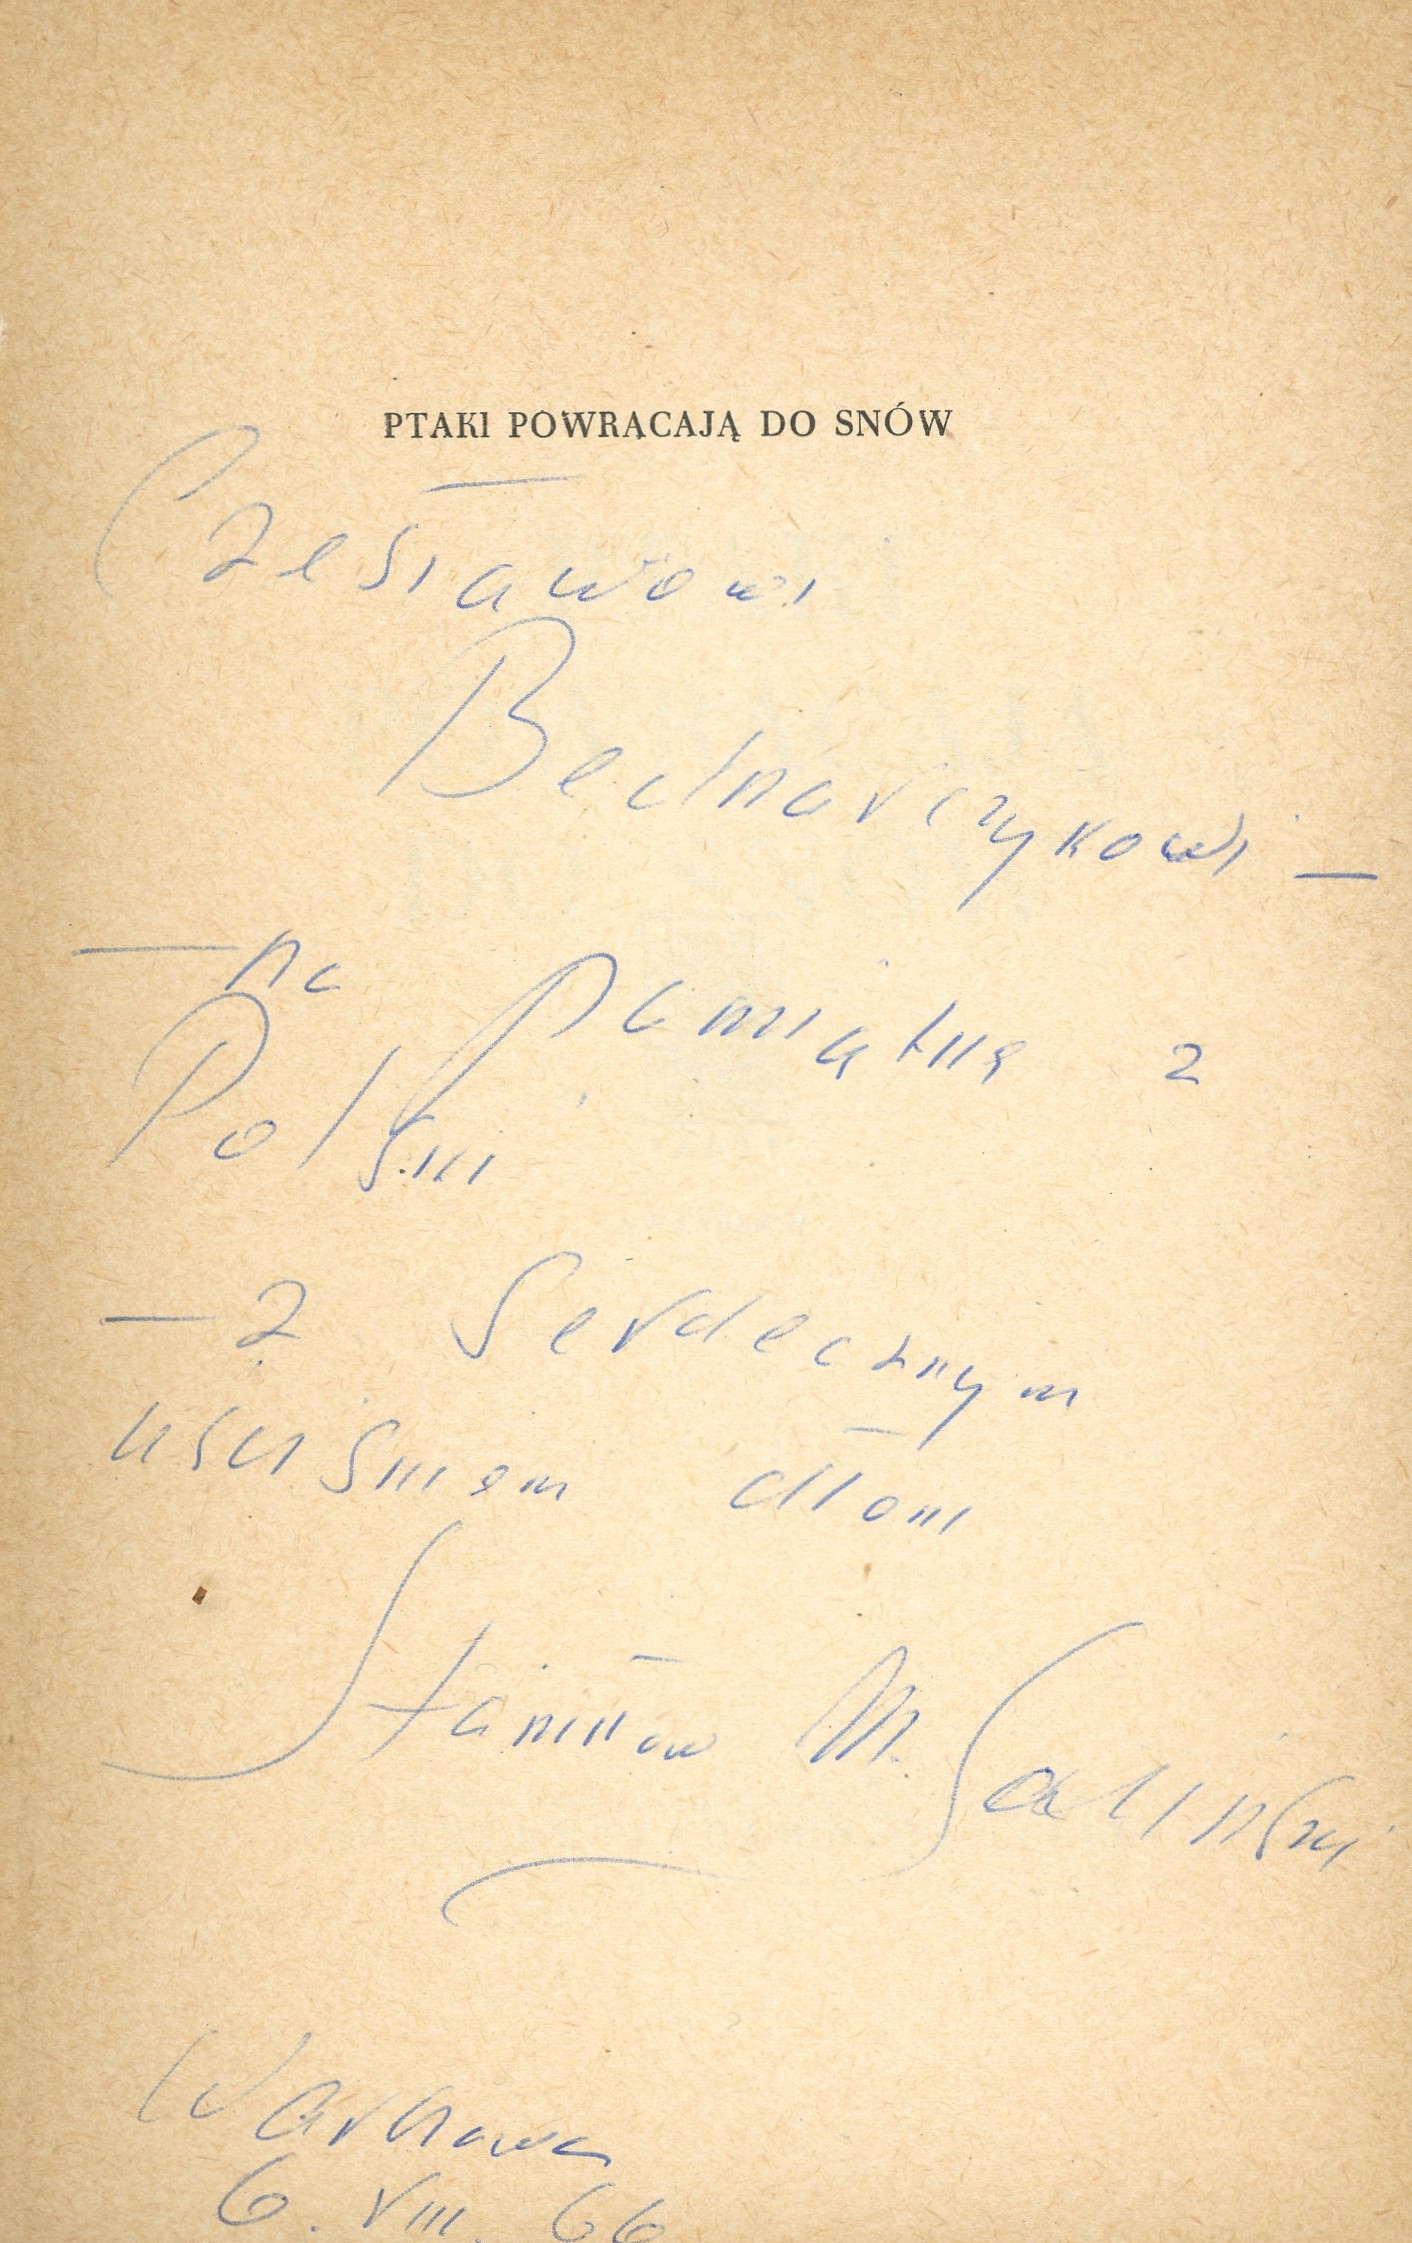 PTAKI POWRACAJĄ DO SNÓW
Czesławowi
Bednarczykowi —
— na pamiątkę z
Polski
— z serdecznym
uściśnieniem dłoni
Stanisław M. Saliński
Warszawa
6. VIII. 66